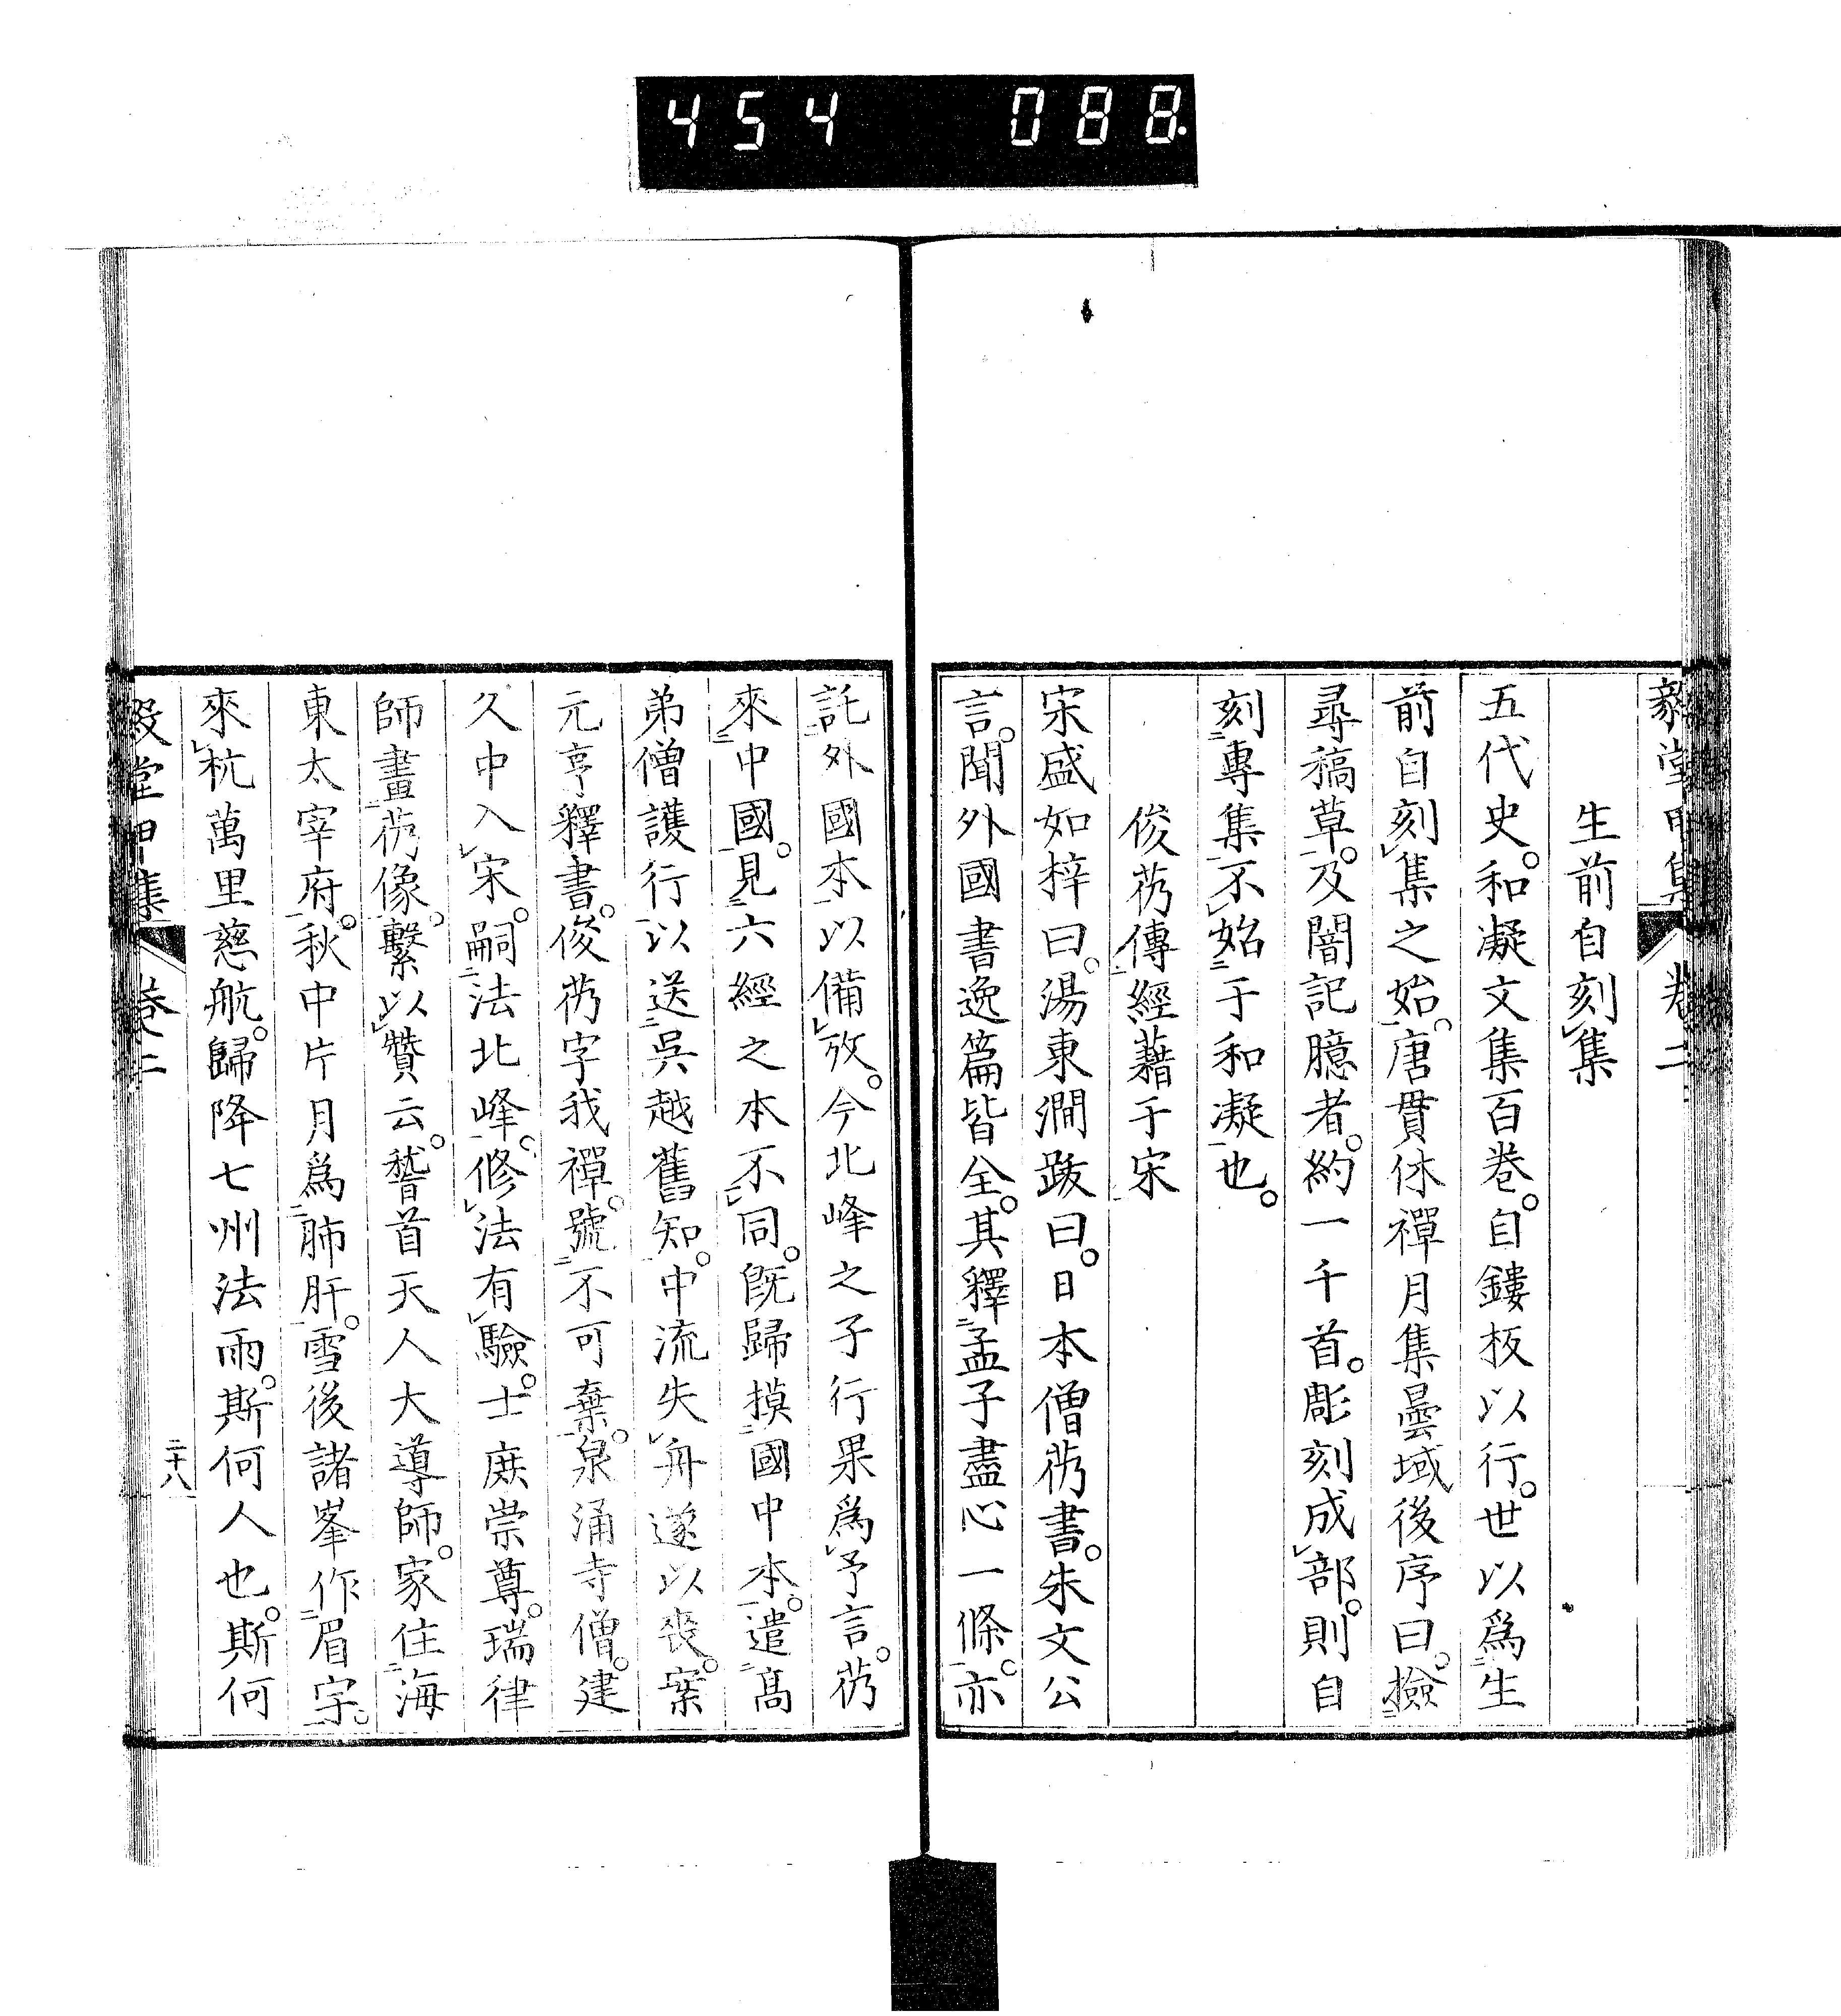 454 088.
毅堂甲集 卷二
生前自刻集
五代史。和凝文集百卷。自鏤板以行。世以爲生
前自刻集之始。唐貫休禪月集曇域後序曰。撿
尋稿草。及闇記臆者。約一千首。彫刻成部。則自
刻專集不始于和凝也。
俊芿傳經藉于宋
宋盛如梓曰。湯東澗跋曰。日本僧芿書。朱文公
言。聞外國書逸篇皆全。其釋孟子盡心一條。亦
託外國本以備攷。今北峰之子行果爲予言。芿
來中國。見六經之本不同。旣歸摸國中本。遣高
弟僧護行以送吳越舊知。中流失舟遂以喪。案
元亨釋書。俊芿字我禪。號不可棄。泉涌寺僧。建
久中入宋。嗣法北峰。修法有驗。士庶崇尊。瑞律
師畫芿像。繫以贊云。稽首天人大導師。家住海
東太宰府。秋中片月爲肺肝。雪後諸峯作眉宇。
來杭萬里慈航。歸降七州法雨。斯何人也。斯何
毅堂甲集 卷二 二十八